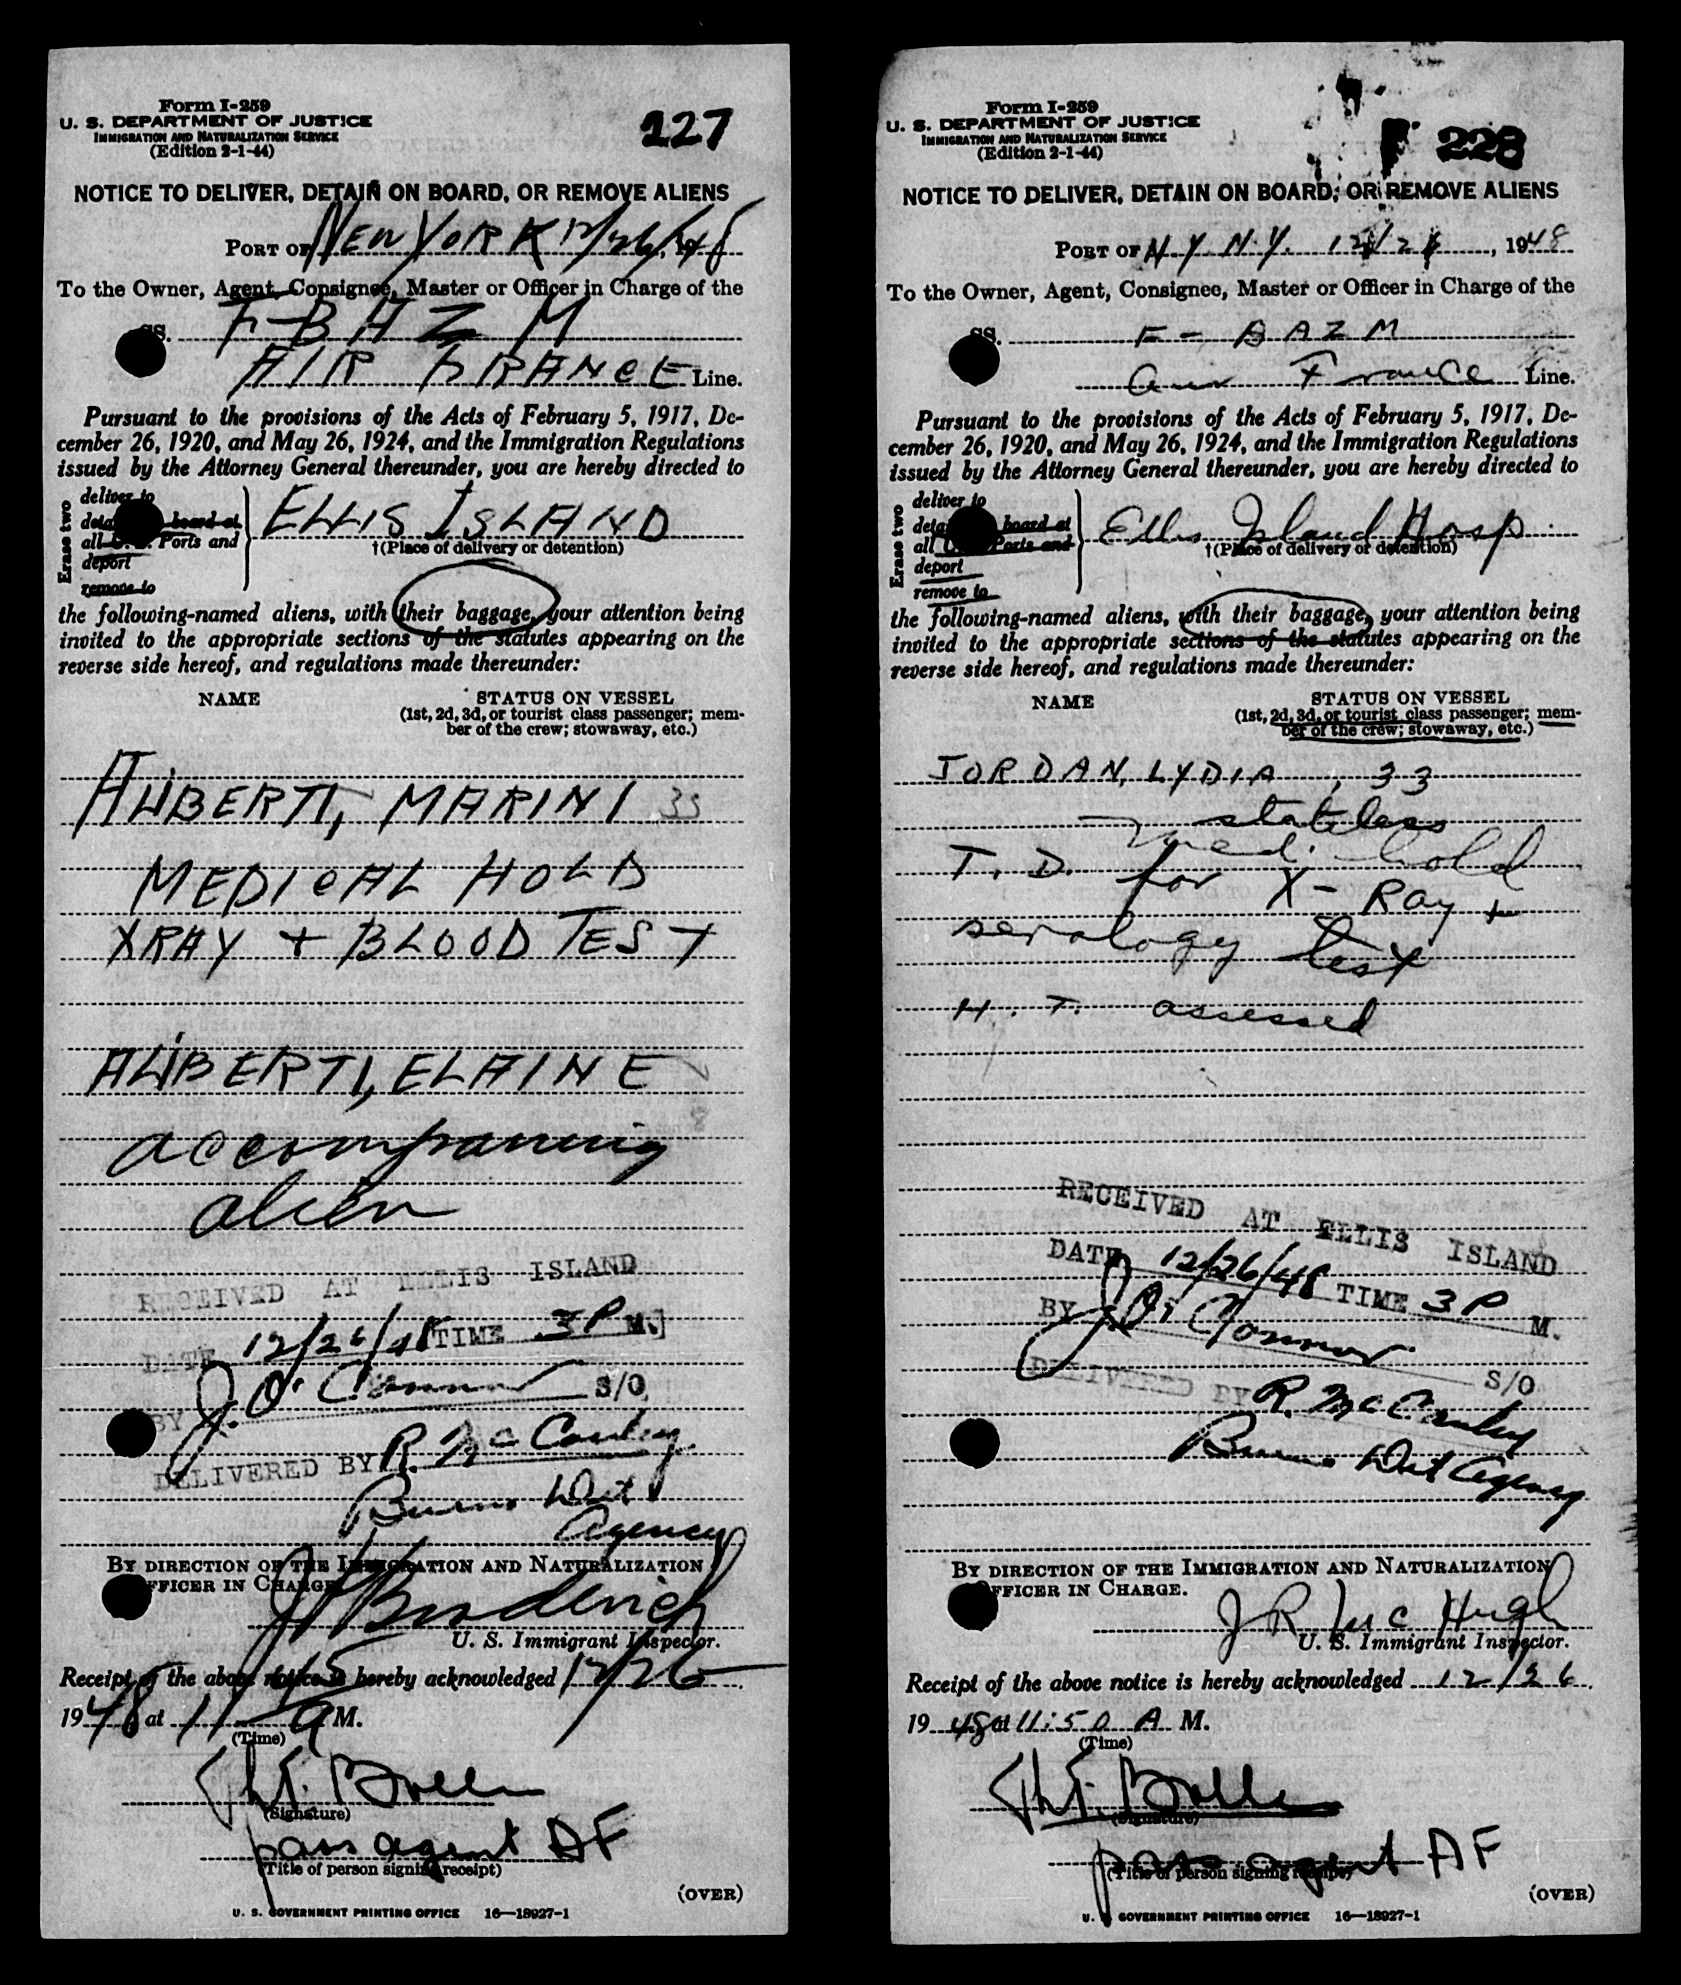 Form I-259
U. S. DEPARTMENT OF JUSTICE
IMMIGRATION AND NATURALIZATION SERVICE
(Edition 2-1-44)
227
NOTICE TO DELIVER, DETAIN ON BOARD, OR REMOVE ALIENS
PORT OF NEW YORK 12/26, 1948
To the Owner, Agent, Consignee, Master or Officer in Charge of the
SS. F-BAZM
AIR FRANCE Line.
Pursuant to the provisions of the Acts of February 5, 1917, De-
cember 26, 1920, and May 26, 1924, and the Immigration Regulations
issued by the Attorney General thereunder, you are hereby directed to
Erase two
deliver to
board at
all Ports and
deport
remove to
ELLIS ISLAND
†(Place of delivery or detention)
the following-named aliens, with their baggage, your attention being
invited to the appropriate sections of the statutes appearing on the
reverse side hereof, and regulations made thereunder:
NAME STATUS ON VESSEL
(1st, 2d, 3d, or tourist class passenger; mem-
ber of the crew; stowaway, etc.)
ALIBERTI, MARINI 33
MEDICAL HOLD
XRAY + BLOOD TEST
ALIBERTI, ELAINE
8
accompanying
alien
RECEIVED AT ELLIS ISLAND
DATE 12/26/48 TIME 3P M.
BY J. O'Connor S/O
DELIVERED BY R. McCauley
Burns Det
Agency
BY DIRECTION OF THE IMMIGRATION AND NATURALIZATION
OFFICER IN CHARGE.
U. S. Immigrant Inspector.
Receipt of the above notice is hereby acknowledged 12/26
1948 at 11 A M.
(Time)
(Signature)
pass agent AF
(Title of person signing receipt)
(OVER)
U. S. GOVERNMENT PRINTING OFFICE 16—18927-1
Form I-259
U. S. DEPARTMENT OF JUSTICE
IMMIGRATION AND NATURALIZATION SERVICE
(Edition 2-1-44)
228
NOTICE TO DELIVER, DETAIN ON BOARD, OR REMOVE ALIENS
PORT OF N.Y. N.Y. 12/26, 1948
To the Owner, Agent, Consignee, Master or Officer in Charge of the
SS. F-BAZM
Air France Line.
Pursuant to the provisions of the Acts of February 5, 1917, De-
cember 26, 1920, and May 26, 1924, and the Immigration Regulations
issued by the Attorney General thereunder, you are hereby directed to
Erase two
deliver to
board at
all Ports and
deport
remove to
Ellis Island Hosp.
†(Place of delivery or detention)
the following-named aliens, with their baggage, your attention being
invited to the appropriate sections of the statutes appearing on the
reverse side hereof, and regulations made thereunder:
NAME STATUS ON VESSEL
(1st, 2d, 3d, or tourist class passenger; mem-
ber of the crew; stowaway, etc.)
JORDAN, LYDIA, 33
stateless
T. D. med. hold
for X-Ray +
serology test
H. T. assessed
RECEIVED AT ELLIS ISLAND
DATE 12/26/48 TIME 3P M.
BY J. O'Connor S/O
DELIVERED BY R. McCauley
Burns Det Agency
BY DIRECTION OF THE IMMIGRATION AND NATURALIZATION
OFFICER IN CHARGE.
J R McHugh
U. S. Immigrant Inspector.
Receipt of the above notice is hereby acknowledged 12/26,
1948 at 11:50 A M.
(Time)
(Signature)
pass agent AF
(Title of person signing receipt)
(OVER)
U. S. GOVERNMENT PRINTING OFFICE 16—18927-1